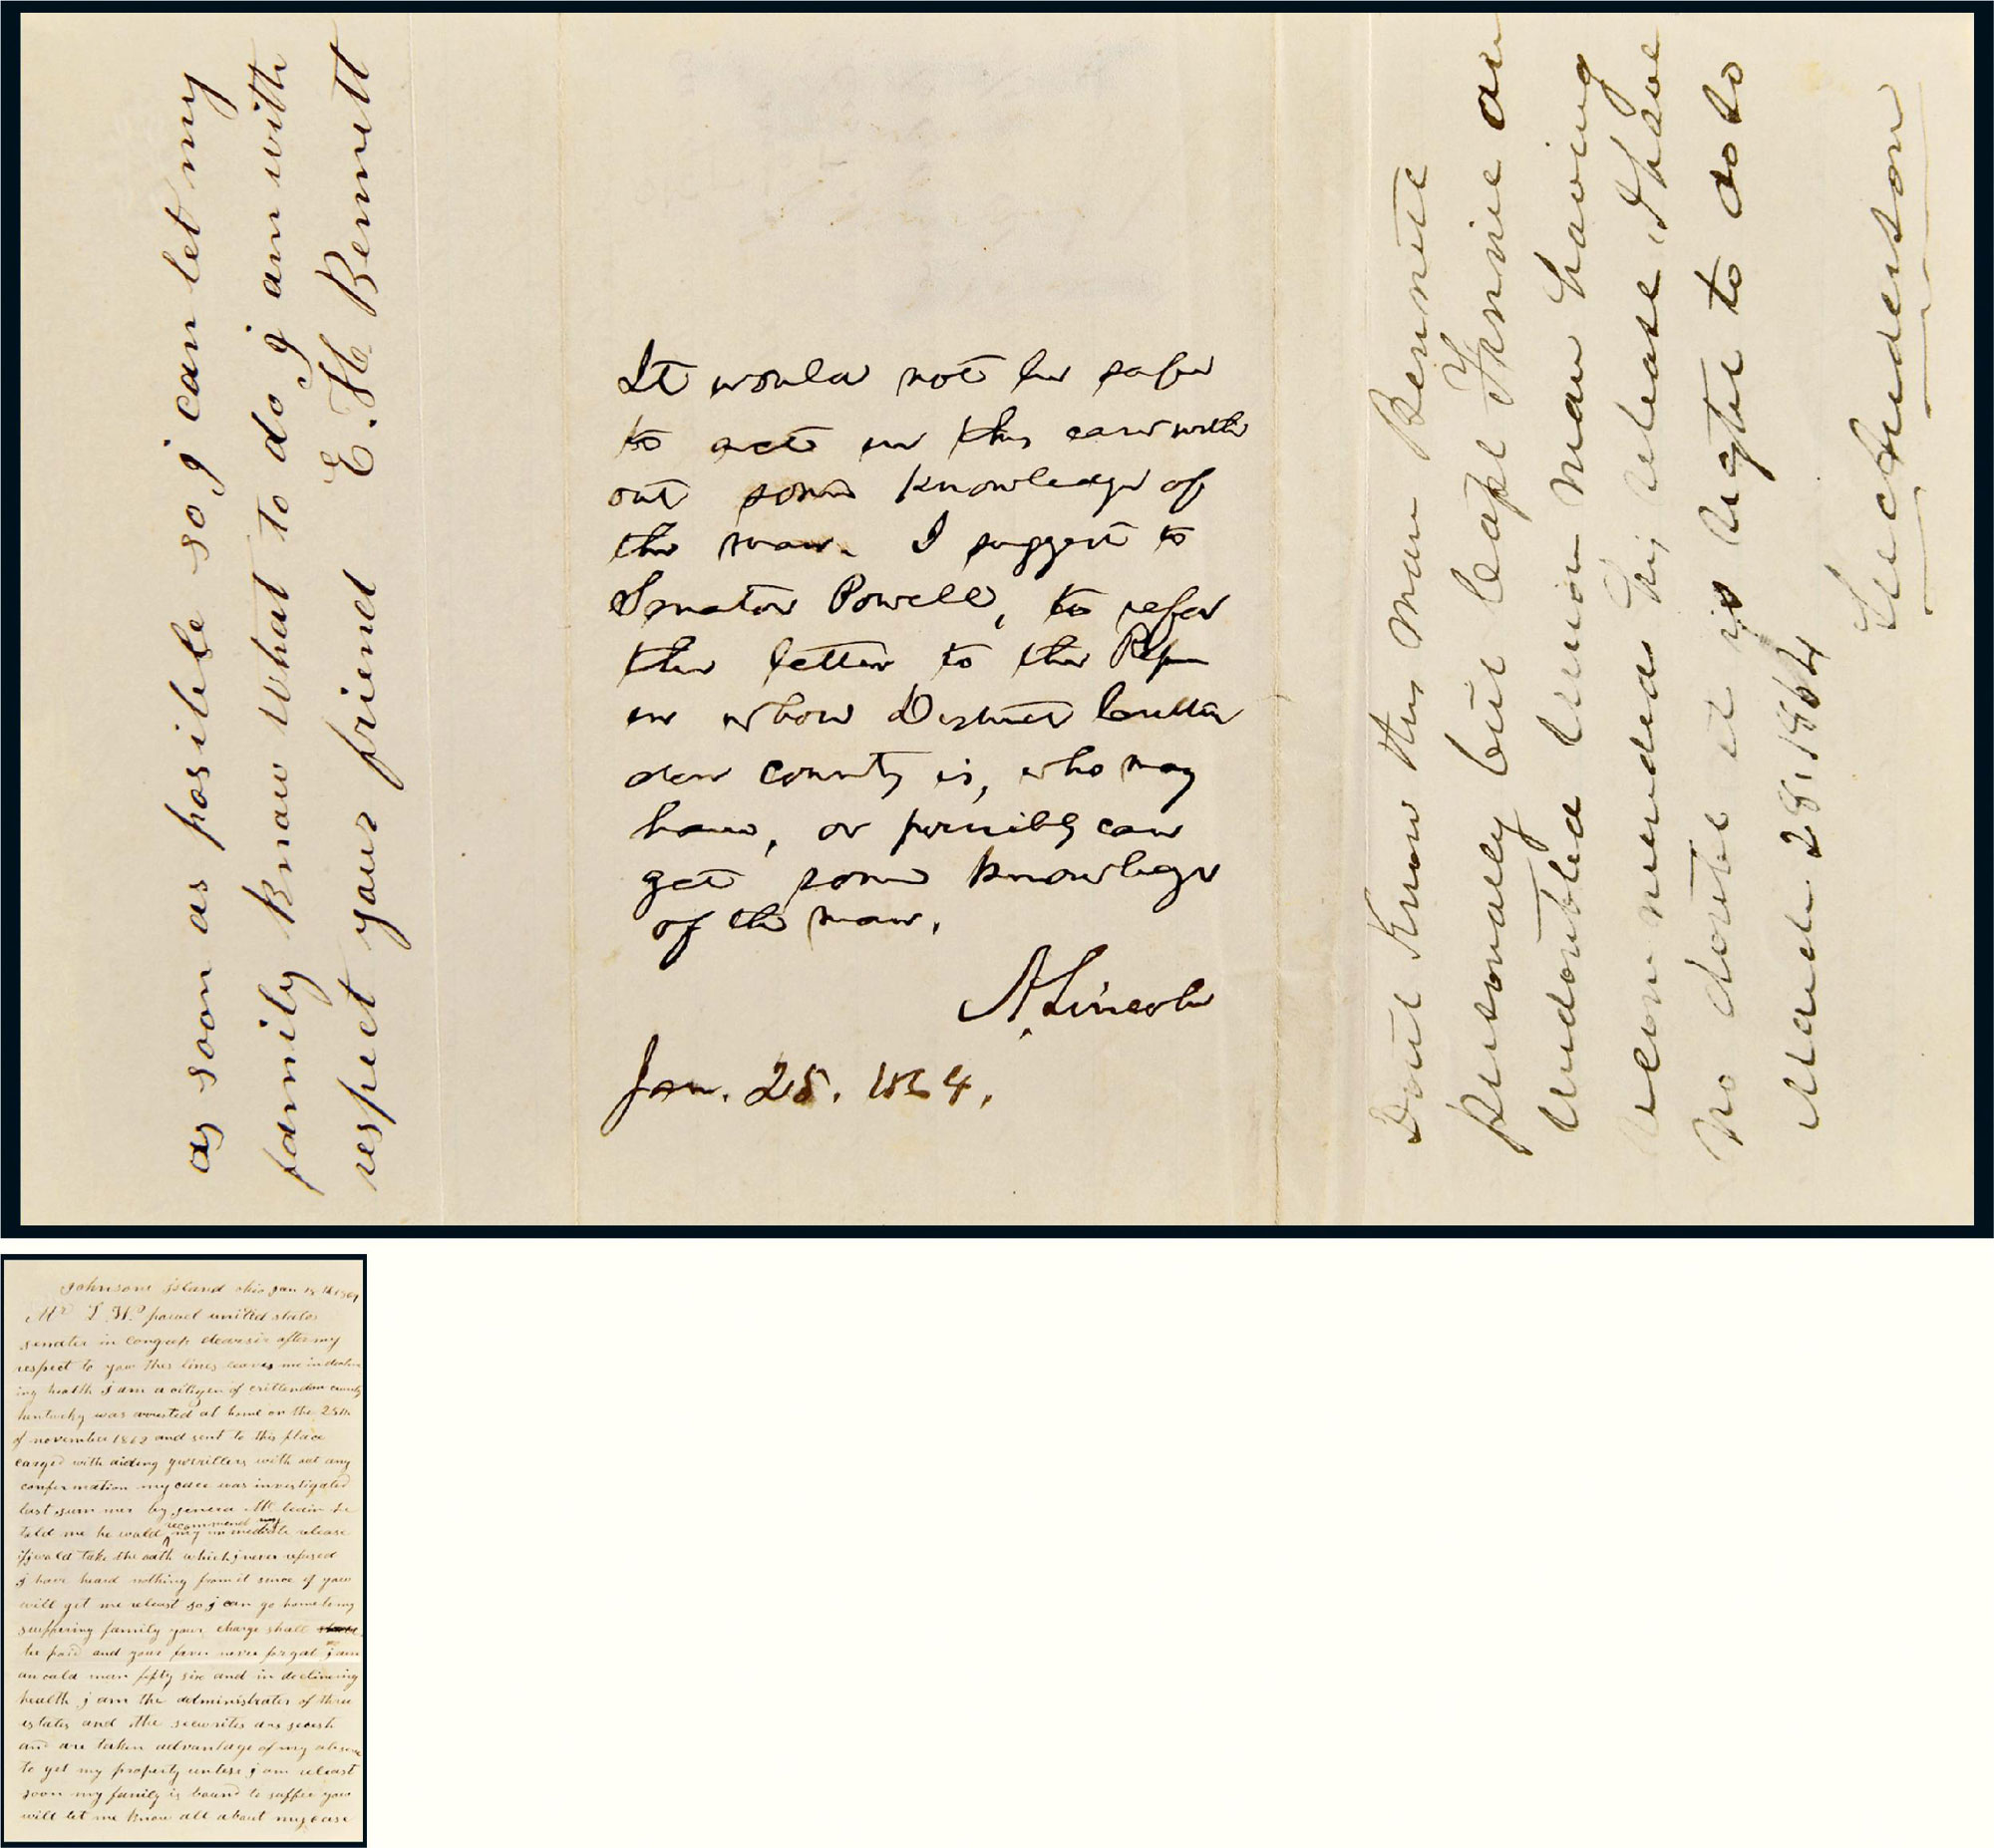 as soon as posible so j can let my
family know what to do j am with
respect your friend E. H. Bennett
It would not be safe
to act in this case with
out some knowledge of
the man. I suggest to
Senator Powell, to refer
this letter to the Rep.
in whose District Critten
den county is, who may
have, or possibly can
get some knowledge
of the man.
A. Lincoln
Jan. 28. 1864.
Dont Know this man Bennett
personally but leapt Thrnie an
undoubted Union man having
recommended his release I have
no doubt it is right to do so
March 28. 1864
Luc Anderson
Johnsons island ohio Jan
Mr L. W. powel united states
senater in Congress dear sir after my
respect to yow thes lines leaves me in declin
ing health j am a citizen of crittendon county
kentucky was arrested at home on the 25th
of november 1862 and sent to this place
carged with aideing guerrillers with out any
confermation my case was investigated
last summer by genera Mc leain he
told me he wold recommend my my immediate release
if j wold take the oath which j never refused
j have heard nothing from it since if yow
will get me releast so j can go home to my
suffering family your charge shall
be paid and your favor never forgat j am
an old man fifty six and in declineing
health j am the administrater of three
estates and the securites ars secesh
and are taken advantage of my absence
to get my property unless j am releast
soon my family is bound to suffer yow
will let me know all about my case